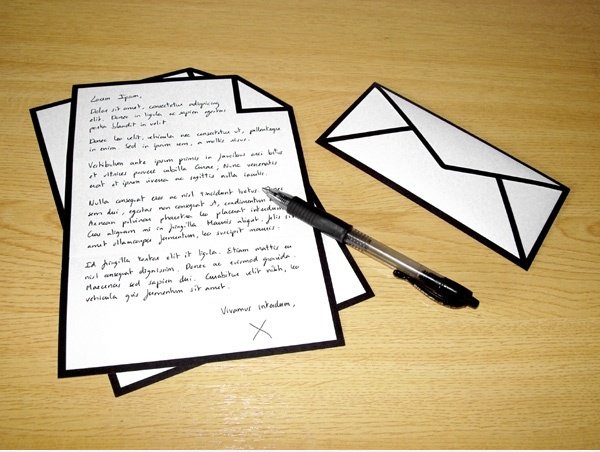 Lorem Ipsum,
Dolor sit amet, consectetur adipiscing
elit. Donec in ligula, ac sapien egestas
porta blandit in velit
Donec leo velit, vehicula nec consectetur ut, pellentesque
in enim. Sed in ipsum sem, a mollis risus.
Vestibulum ante ipsum primis in faucibus orci luctus
et ultrices posuere cubilia Curae; Nunc venenatis
erat et ipsum viverra ac sagittis nulla iaculis.
Nulla consequat eros ac nisl tincidunt luctus
sem dui, egestas non consequat a, condimentum
Aenean pulvinar pharetra leo placerat interdum
Cras aliquam mi in fringilla. Mauris aliquet, felis sit
amet ullamcorper fermentum, leo suscipit mauris.
Id fringilla tortor elit et ligula. Etiam mattis eu
nisl consequat dignissim. Donec ac euismod gravida.
Maecenas sed sapien dui. Curabitur velit nibh, leo
vehicula quis fermentum sit amet.
Vivamus interdum,
X